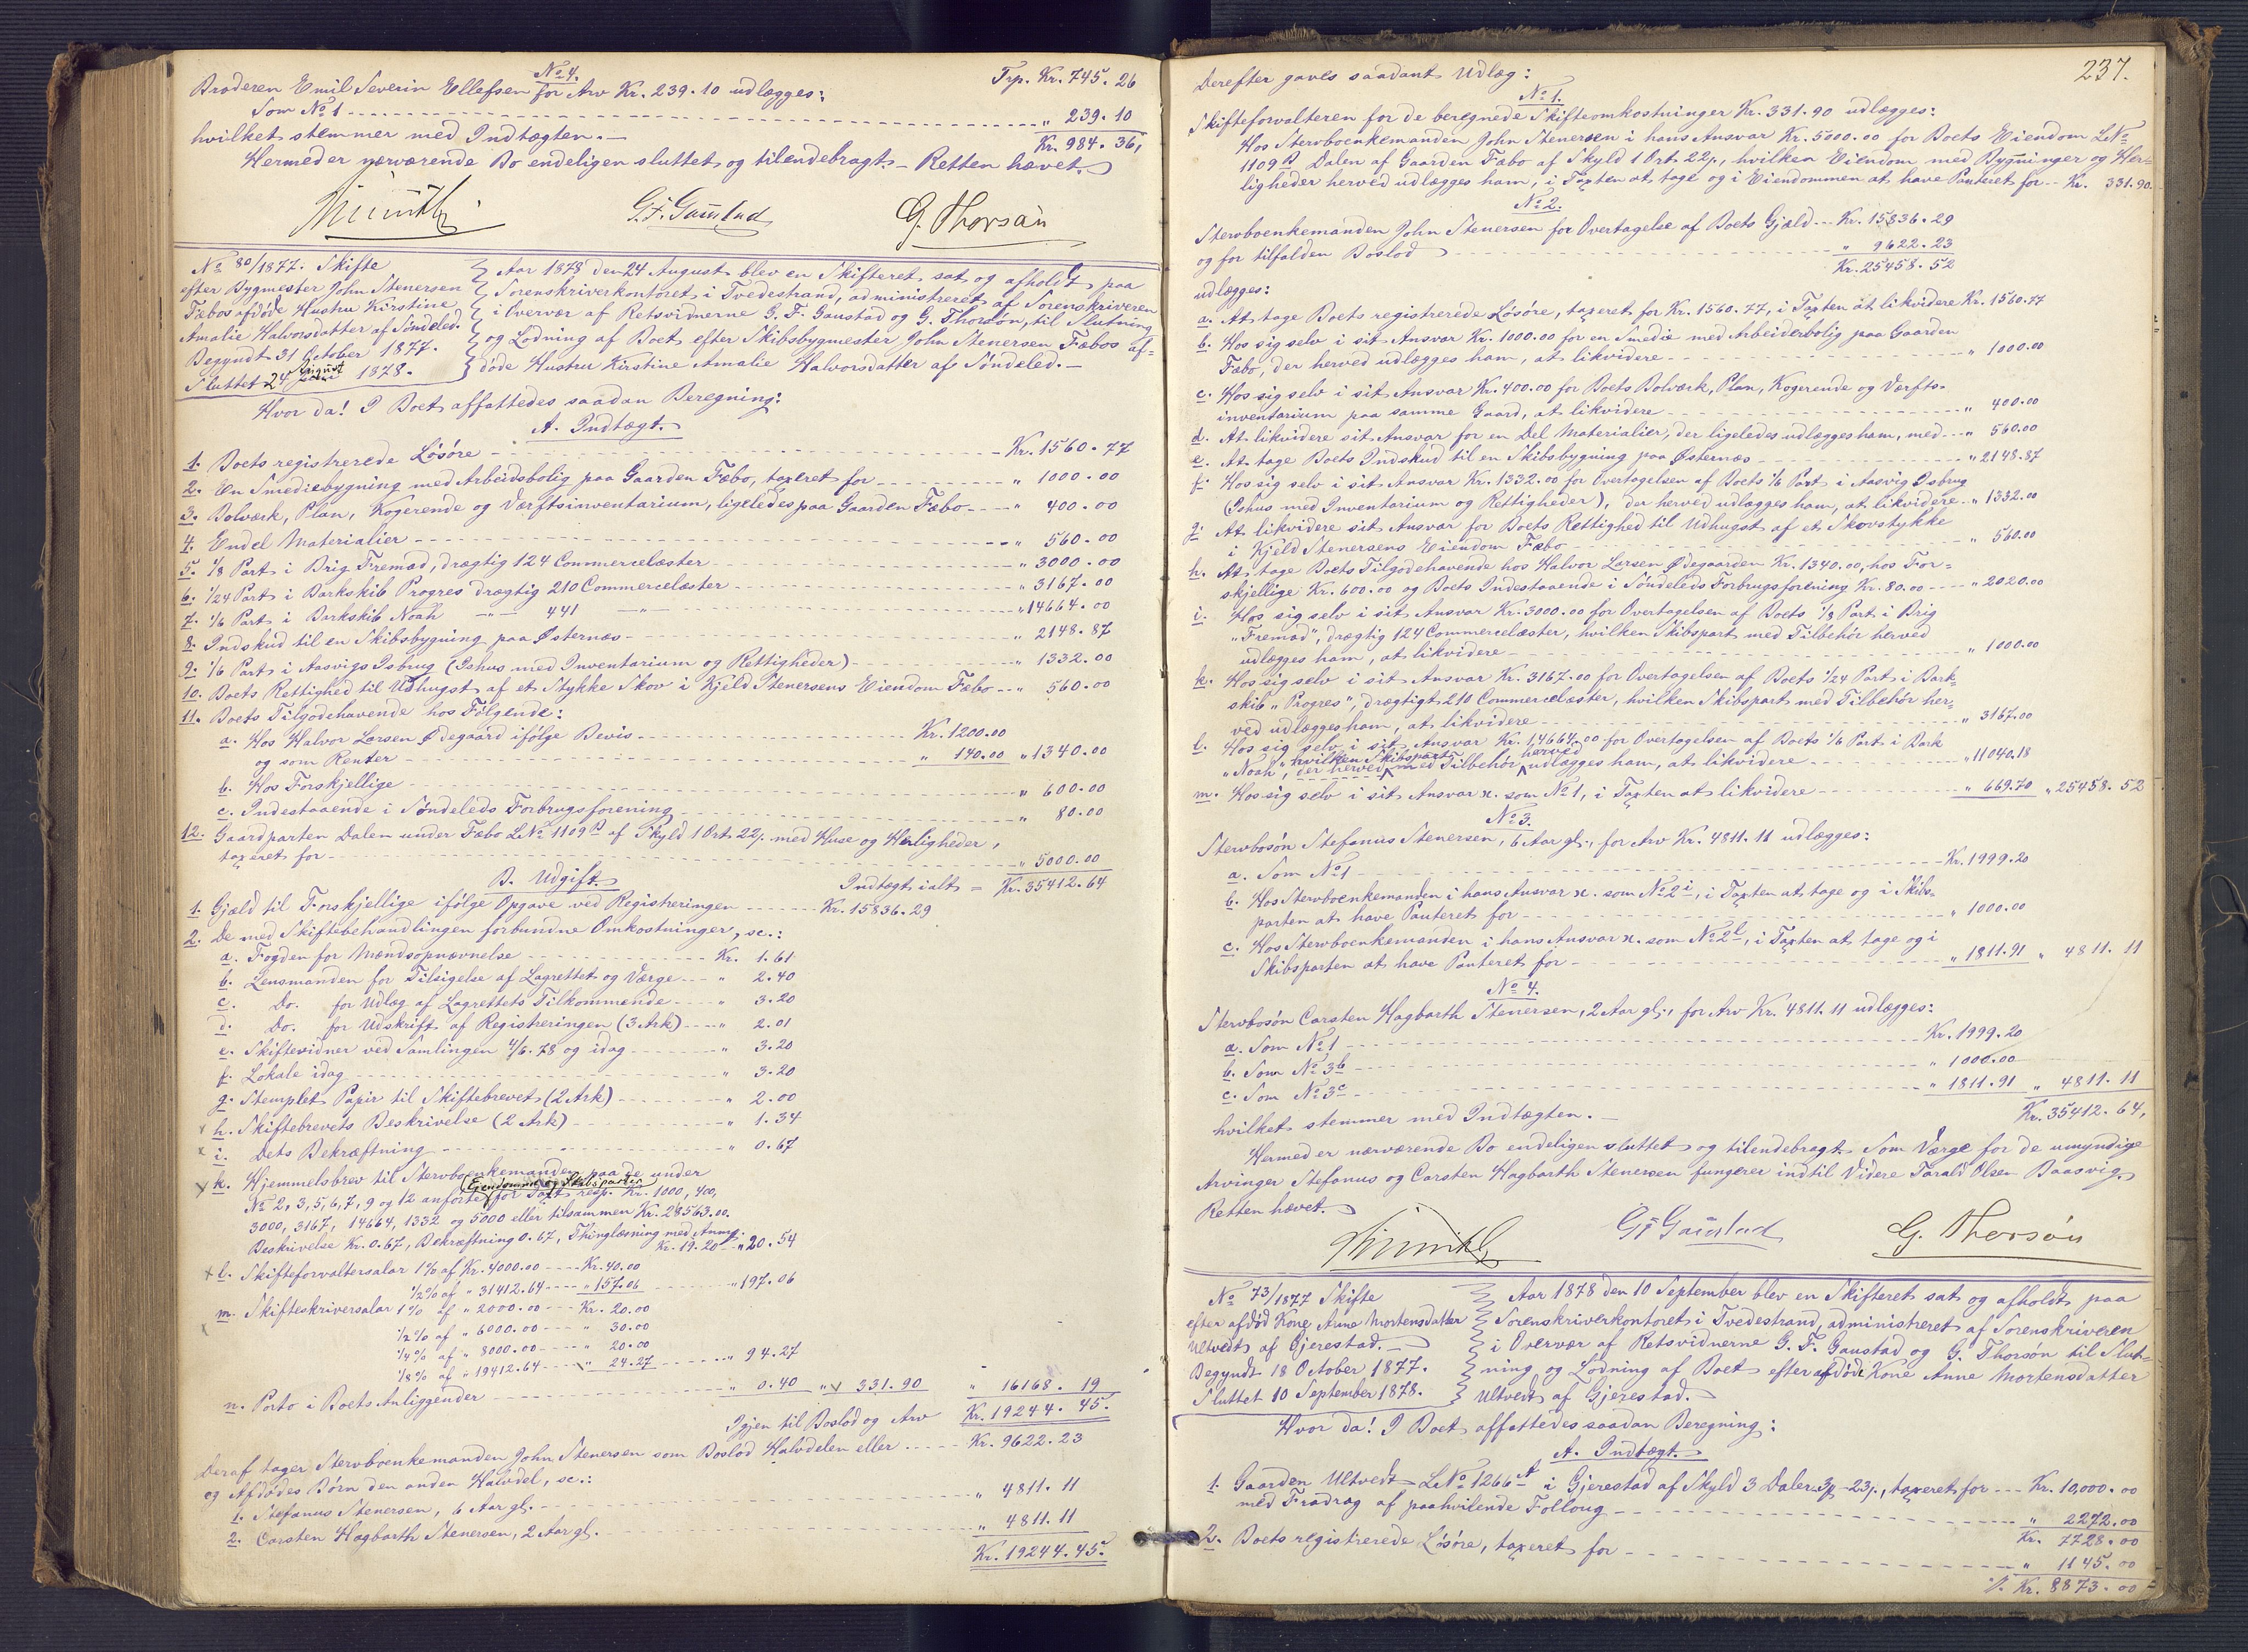 No 4.
Broderen Emil Severin Ellefsen for Arv Kr. 239.10 udlægges:
Trp. Kr. 745.26
Som No 1 " 239.10
hvilket stemmer med Indtægten.—
Kr. 984.36,
Hermed er nærværende Bo endeligen sluttet og tilendebragt. – Retten hævet.
G. F. Gaustad
G. Thorsön
No 80/1877. Skifte
efter Bygmester John Stenersen
Fæbos afdöde Hustru Kirstine
Amalie Halvorsdatter af Söndeled.
Begyndt 31 October 1877.
Sluttet 24 August 1878.
Aar 1878 den 24 August blev en Skifteret sat og afholdt paa
Sorenskriverkontoret i Tvedestrand, administreret af Sorenskriveren
i Overvær af Retsvidnerne G. F. Gaustad og G. Thorsön, til Slutning
og Lodning af Boet efter Skibsbygmester John Stenersen Fæbos af-
döde Hustru Kirstine Amalie Halvorsdatter af Söndeled.—
Hvor da! I Boet affattedes saadan Beregning:
A. Indtægt.
1. Boets registrerede Lösöre Kr. 1560.77
2. En Smediebygning med Arbeidsbolig paa Gaarden Fæbo, taxeret for " 1000.00
3. Bolværk, Plan, Kogerende og Værftsinventarium, ligeledes paa Gaarden Fæbo " 400.00
4. Endel Materialier " 560.00
5. 1/8 Part i Brig Fremad, drægtig 124 Commercelæster " 3000.00
6. 1/24 Part i Barkskib Progres drægtig 210 Commercelæster " 3167.00
7. 1/6 Part i Barkskib Noah " 441 " " 14664.00
8. Indskud til en Skibsbygning paa Østernæs " 2148.87
9. 1/6 Part i Aasvigs Isbrug (Ishus med Inventarium og Rettigheder) " 1332.00
10. Boets Rettighed til Udhugst af et Stykke Skov i Kjeld Stenersens Eiendom Fæbo " 560.00
11. Boets Tilgodehavende hos Fölgende:
a. Hos Halvor Larsen Ødegaard ifölge Bevis Kr. 1200.00
og som Renter " 140.00 " 1340.00
b. Hos Forskjellige " 600.00
c. Indestaaende i Söndeleds Forbrugsforening " 80.00
12. Gaardparten Dalen under Fæbo LNo 1109 b af Skyld 1 Ort 22 s. med Huse og Herligheder,
taxeret for " 5000.00
Indtægt ialt = Kr. 35412.64
B. Udgift.
1. Gjæld til Forskjellige ifölge Opgave ved Registreringen Kr. 15836.29
2. De med Skiftebehandlingen forbundne Omkostninger, sc.:
a. Fogden for Mændsopnævnelse Kr. 1.61
b. Lensmanden for Tilsigelse af Lagrettet og Værge " 2.40
c. Do. for Udlæg af Lagrettets Tilkommende " 3.20
d. Do. for Udskrift af Registreringen (3 Ark) " 2.01
e. Skiftevidner ved Samlingen 4/6.78 og idag " 3.20
f. Lokale idag " 3.20
g. Stemplet Papir til Skiftebrevet (2 Ark) " 2.00
h. Skiftebrevets Beskrivelse (2 Ark) " 1.34
i. Dets Bekræftning " 0.67
k. Hjemmelsbrev til Stervboenkemanden paa de under
No 2, 3, 5, 6, 7, 9 og 12 anförte Eiendomme og Skibsparter for Taxt resp. Kr. 1000, 400,
3000, 3167, 14664, 1332 og 5000 eller tilsammen Kr. 28563.00.
Beskrivelse Kr. 0.67, Bekræftning 0.67, Thinglæsning med Anmp.
Kr. 19.20 " 20.54
l. Skifteforvaltersalar 1% af Kr. 4000.00 Kr. 40.00
1/2% af " 31412.64 " 157.06 " 197.06
m. Skifteskriversalar 1% af " 2000.00 Kr. 20.00
1/2% af " 6000.00 " 30.00
1/4% af " 8000.00 " 20.00
1/8% af " 19412.64 " 24.27 " 94.27
n. Porto i Boets Anliggender " 0.40 " 331.90 " 16168.19
Igjen til Boslod og Arv Kr. 19244.45.
Deraf tager Stervboenkemanden John Stenersen som Boslod Halvdelen eller Kr. 9622.23
og Afdödes Börn den anden Halvdel, sc.:
1. Stefanus Stenersen, 6 Aar gl. " 4811.11
2. Carsten Hagbarth Stenersen, 2 Aar gl. " 4811.11
Kr. 19244.45.
237.
Derefter gaves saadant Udlæg:
No 1.
Skifteforvalteren for de beregnede Skifteomkostninger Kr. 331.90 udlægges:
Hos Stervboenkemanden John Stenersen i hans Ansvar Kr. 5000.00 for Boets Eiendom LNo
1109 b Dalen af Gaarden Fæbo af Skyld 1 Ort 22 s., hvilken Eiendom med Bygninger og Her-
ligheder herved udlægges ham, i Taxten at tage og i Eiendommen at have Panteret for Kr. 331.90.
No 2.
Stervboenkemanden John Stenersen for Overtagelse af Boets Gjæld Kr. 15836.29
og for tilfalden Boslod " 9622.23
Kr. 25458.52
udlægges:
a. At tage Boets registrerede Lösöre, taxeret for Kr. 1560.77, i Taxten at likvidere Kr. 1560.77
b. Hos sig selv i sit Ansvar Kr. 1000.00 for en Smedie med Arbeiderbolig paa Gaarden
Fæbo, der herved udlægges ham, at likvidere " 1000.00
c. Hos sig selv i sit Ansvar Kr. 400.00 for Boets Bolværk, Plan, Kogerende og Værfts-
inventarium paa samme Gaard, at likvidere " 400.00
d. At likvidere sit Ansvar for en Del Materialier, der ligeledes udlægges ham, med " 560.00
e. At tage Boets Indskud til en Skibsbygning paa Østernæs " 2148.87
f. Hos sig selv i sit Ansvar Kr. 1332.00 for Overtagelsen af Boets 1/6 Part i Aasvig Isbrug
(Ishus med Inventarium og Rettigheder), der herved udlægges ham, at likvidere " 1332.00
g. At likvidere sit Ansvar for Boets Rettighed til Udhugst af et Skovstykke
i Kjeld Stenersens Eiendom Fæbo " 560.00
h. At tage Boets Tilgodehavende hos Halvor Larsen Ødegaarden Kr. 1340.00, hos For-
skjellige Kr. 600.00 og Boets Indestaaende i Söndeleds Forbrugsforening Kr. 80.00 " 2020.00
i. Hos sig selv i sit Ansvar Kr. 3000.00 for Overtagelsen af Boets 1/8 Part i Brig
"Fremad", drægtig 124 Commercelæster, hvilken Skibspart med Tilbehör herved
udlægges ham, at likvidere " 1000.00
k. Hos sig selv i sit Ansvar Kr. 3167.00 for Overtagelsen af Boets 1/24 Part i Bark-
skib "Progres", drægtigt 210 Commercelæster, hvilken Skibspart med Tilbehör her-
ved udlægges ham, at likvidere " 3167.00
l. Hos sig selv i sit Ansvar Kr. 14664.00 for Overtagelsen af Boets 1/6 Part i Bark
"Noah", der herved hvilken Skibspart med Tilbehör herved udlægges ham, at likvidere " 11040.18
m. Hos sig selv i sit Ansvar x. som No 1, i Taxten at likvidere " 669.70 " 25458.52
No 3.
Stervbosön Stefanus Stenersen, 6 Aar gl., for Arv Kr. 4811.11 udlægges:
a. Som No 1 Kr. 1999.20
b. Hos Stervboenkemanden i hans Ansvar x. som No 2 i, i Taxten at tage og i Skibs-
parten at have Panteret for " 1000.00
c. Hos Stervboenkemanden i hans Ansvar x. som No 2 l, i Taxten at tage og i
Skibsparten at have Panteret for " 1811.91 " 4811.11
No 4.
Stervbosön Carsten Hagbarth Stenersen, 2 Aar gl., for Arv Kr. 4811.11 udlægges:
a. Som No 1 Kr. 1999.20
b. Som No 3 b " 1000.00
c. Som No 3 c " 1811.91 " 4811.11
hvilket stemmer med Indtægten.—
Kr. 35412.64,
Hermed er nærværende Bo endeligen sluttet og tilendebragt. Som Værge for de umyndige
Arvinger Stefanus og Carsten Hagbarth Stenersen fungerer indtil Videre Tarald Olsen Baasvig.
Retten hævet.
G F Gaustad
G. Thorsön
No 73/1877 Skifte
efter afdöd Kone Anne Mortensdatter
Ultvedt af Gjerestad.—
Begyndt 18 October 1877.
Sluttet 10 September 1878.
Aar 1878 den 10 September blev en Skifteret sat og afholdt paa
Sorenskriverkontoret i Tvedestrand, administreret af Sorenskriveren
i Overvær af Retsvidnerne G. F. Gaustad og G. Thorsön til Slut-
ning og Lodning af Boet efter afdöde Kone Anne Mortensdatter
Ultvedt af Gjerestad.
Hvor da! I Boet affattedes saadan Beregning:
A. Indtægt.
1. Gaarden Ultvedt LNo 1266 A i Gjerestad af Skyld 3 Daler 3 23 s., taxeret for Kr. 10,000.00
med Fradrag af paahvilende Folloug " 2272.00
Kr. 7728.00
2. Boets registrerede Lösöre, taxeret for " 1145.00
Kr. 8873.00